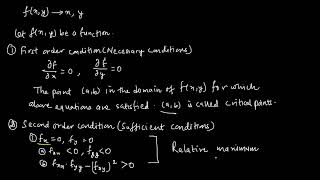 f(x,y) → x, y
Let f(x,y) be a function.
① First order condition (Necessary conditions)
∂f/∂x = 0, ∂f/∂y = 0
The point (a,b) in the domain of f(x,y) for which
above equations are satisfied. (a,b) is called critical points.
② Second order condition (Sufficient conditions)
① fx = 0, fy = 0
② fxx < 0, fyy < 0
③ fxx · fyy − (fxy)² > 0
Relative maximum